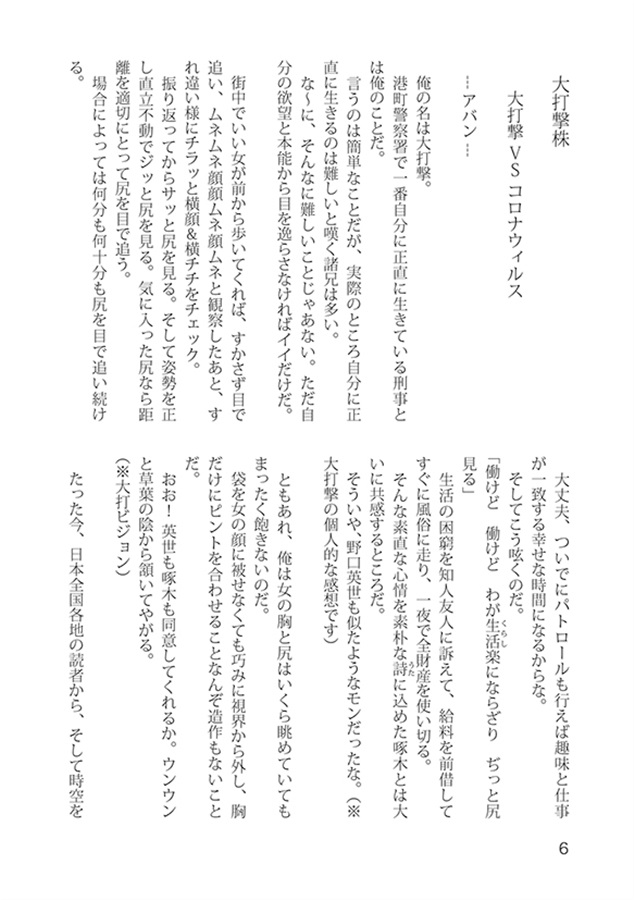 大打撃株
大打撃 VS コロナウィルス
---アバン---
俺の名は大打撃。
港町警察署で一番自分に正直に生きている刑事と
は俺のことだ。
言うのは簡単なことだが、実際のところ自分に正
直に生きるのは難しいと嘆く諸兄は多い。
な～に、そんなに難しいことじゃあない。ただ自
分の欲望と本能から目を逸らさなければイイだけだ。
街中でいい女が前から歩いてくれば、すかさず目で
追い、ムネムネ顔顔ムネ顔ムネと観察したあと、す
れ違い様にチラッと横顔&横チチをチェック。
振り返ってからサッと尻を見る。そして姿勢を正
し直立不動でジッと尻を見る。気に入った尻なら距
離を適切にとって尻を目で追う。
場合によっては何分も何十分も尻を目で追い続け
る。
大丈夫、ついでにパトロールも行えば趣味と仕事
が一致する幸せな時間になるからな。
そしてこう呟くのだ。
「働けど　働けど　わが生活楽にならざり　ぢっと尻
見る」
生活の困窮を知人友人に訴えて、給料を前借して
すぐに風俗に走り、一夜で全財産を使い切る。
そんな素直な心情を素朴な詩に込めた啄木とは大
いに共感するところだ。
そういや、野口英世も似たようなモンだったな。（※
大打撃の個人的な感想です）
ともあれ、俺は女の胸と尻はいくら眺めていても
まったく飽きないのだ。
袋を女の顔に被せなくても巧みに視界から外し、胸
だけにピントを合わせることなんぞ造作もないこと
だ。
おお！英世も啄木も同意してくれるか。ウンウン
と草葉の陰から頷いてやがる。
（※大打ビジョン）
たった今、日本全国各地の読者から、そして時空を
6